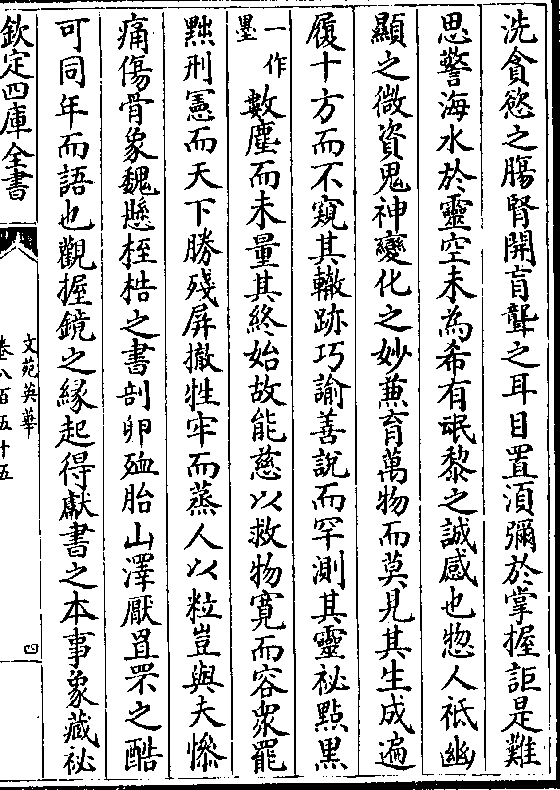 洗貪慾之腸腎開盲聾之耳目置湏彌於掌握詎是難
思警海水於靈空未為希有氓黎之誠感也惣人祗幽
顯之微資鬼神變化之妙兼育萬物而莫見其生成遍
履十方而不窺其轍跡巧諭善說而罕測其靈祕點黒
一作墨數塵而未量其終始故能慈以救物寛而容衆罷
黜刑憲而天下勝殘屏撤牲牢而蒸人以粒豈與夫慘
痛傷骨象魏懸桎梏之書剖卵殈胎山澤厭罝罘之酷
可同年而語也觀握鏡之緣起得獻書之本事象藏祕
欽定四庫全書
文苑英華
卷八百五十五
四